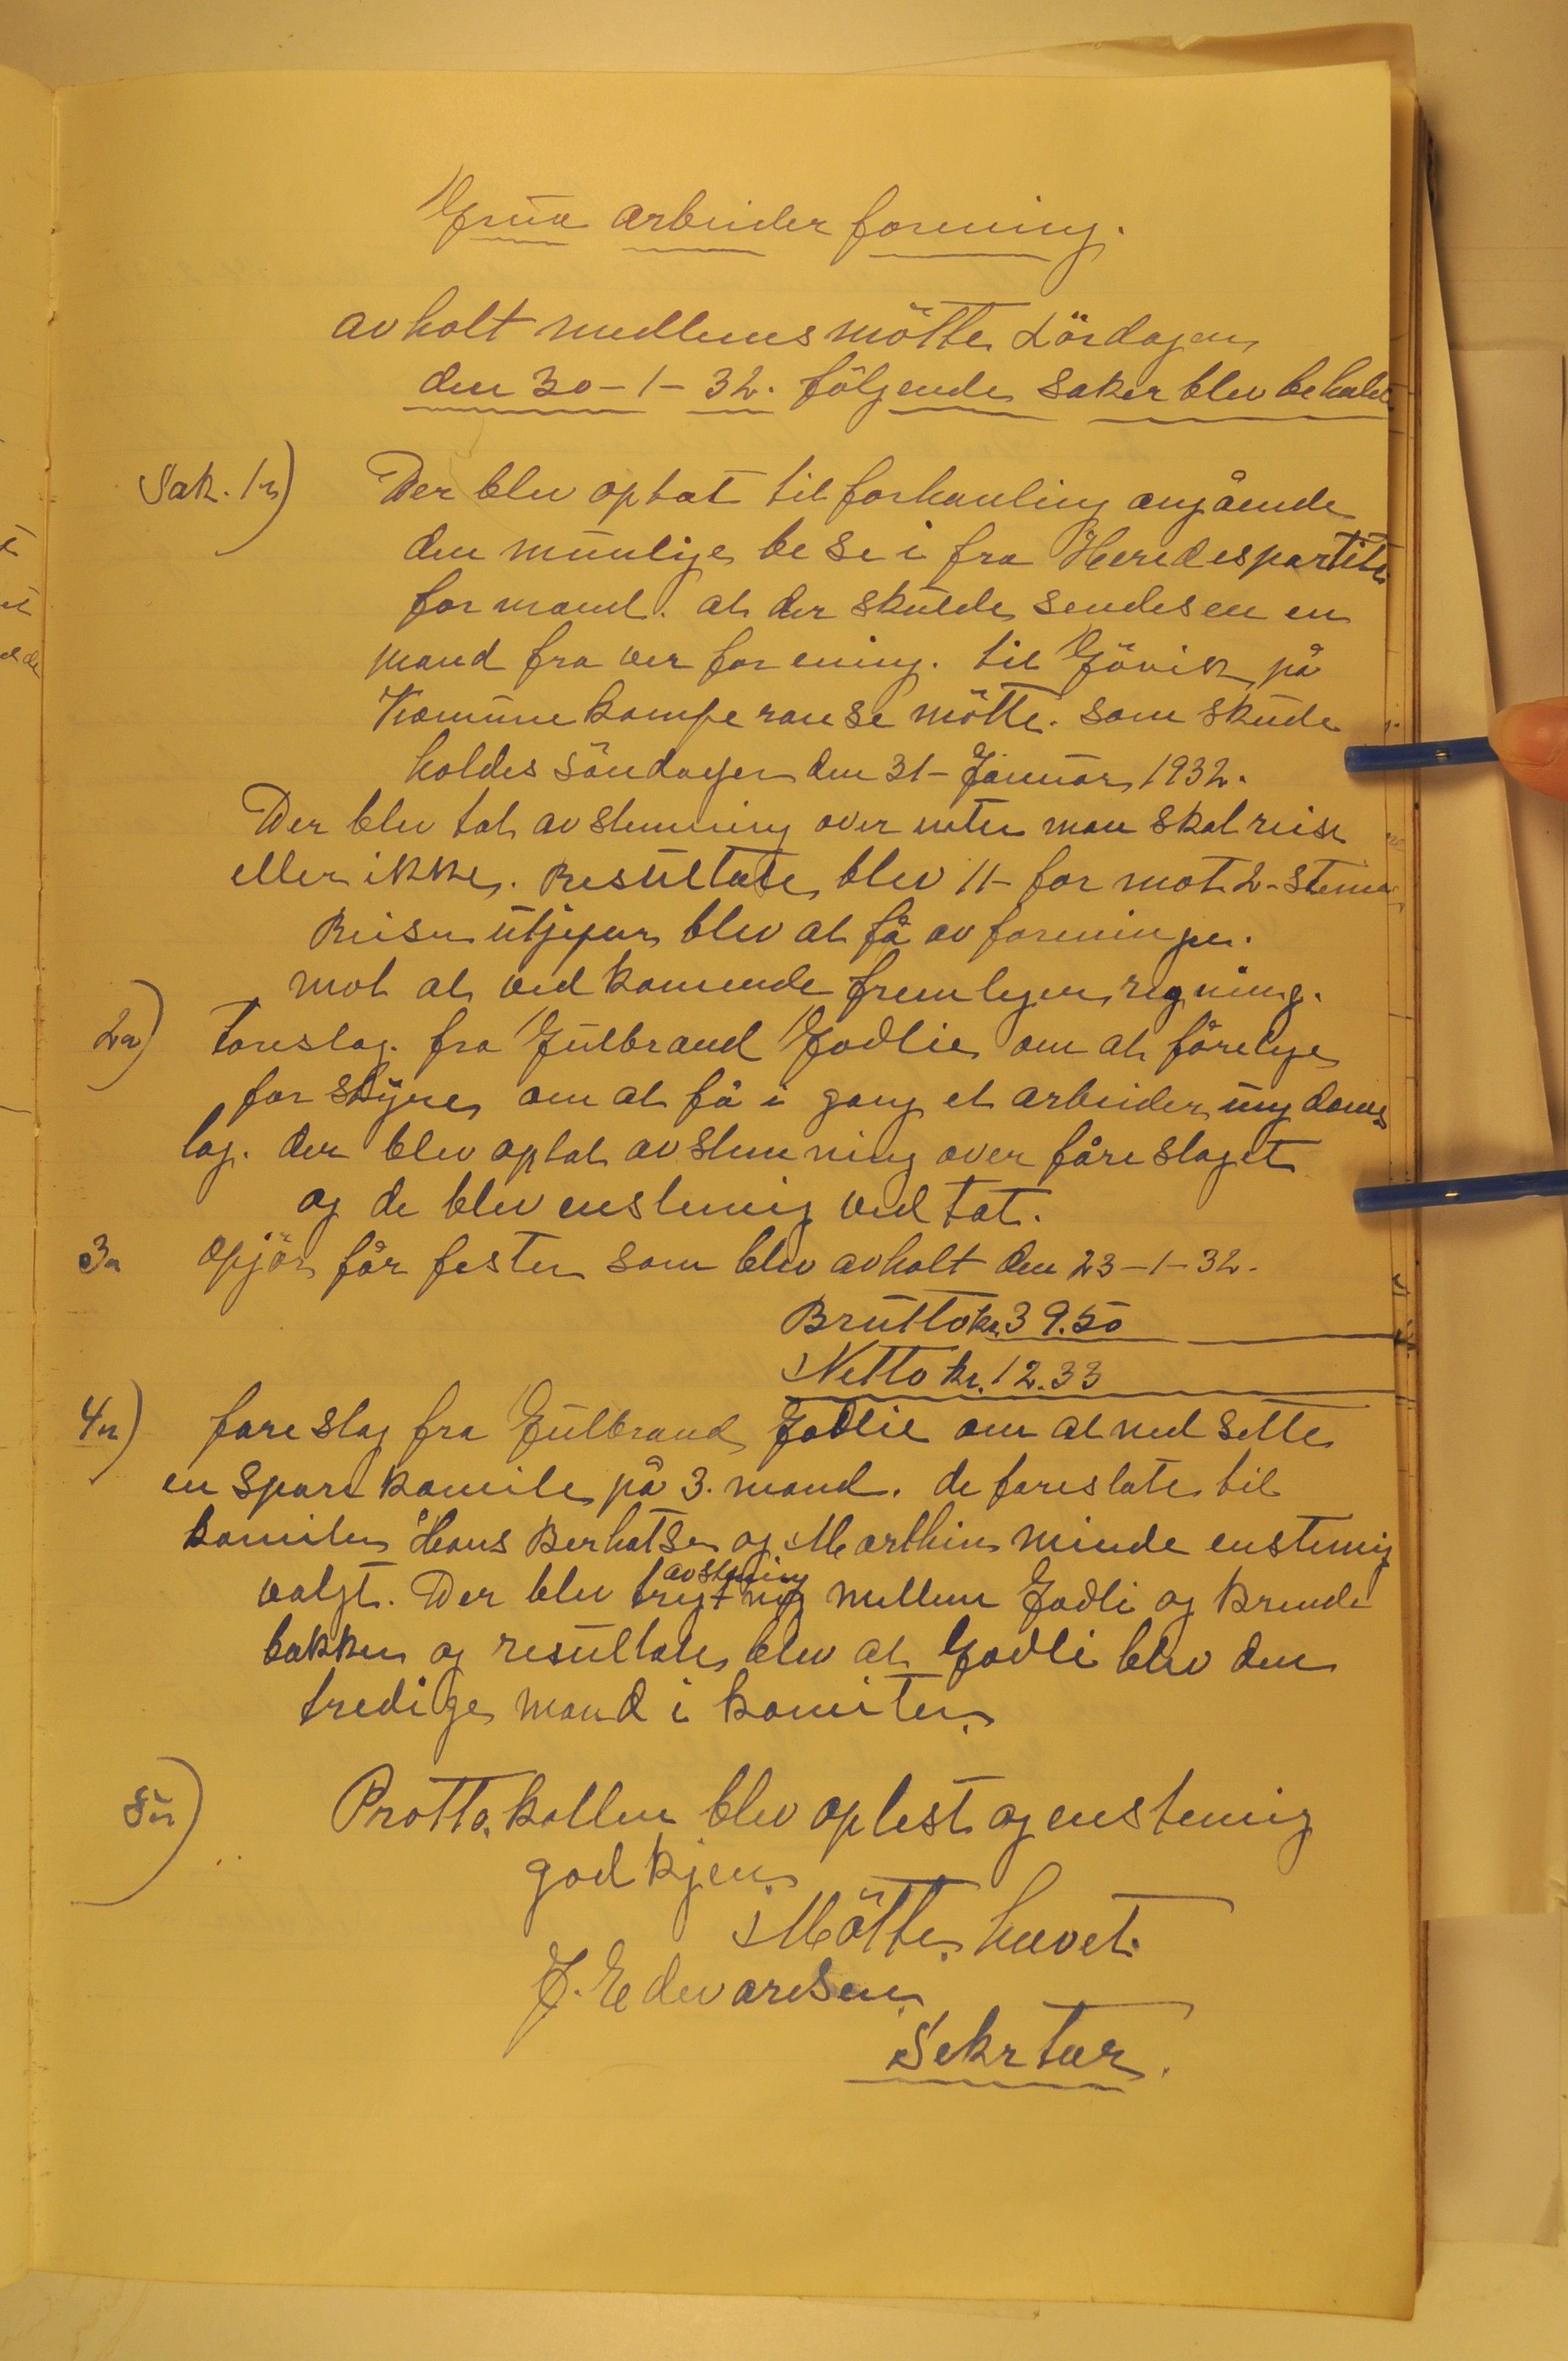 Grua arbeider forening.
avholt medlemsmötte Lördagen
den 30-1-32. fölgende saker blev behalet
Sak. 1n) Der blev optat til forhanling angående
den munlige besei fra Heredespartite
formand. at der skulde sendes en en
mand fra ver forening. til Gövik på
Kommunekomferanse mötte. som skude
holdes söndagen den 31-Januar 1932.
Der blev tat avstemning over enten man skal reise
eller ikke. Resultate blev 11- for mot 2-stemer
Reisen utgjepur blev at få av foreningen.
mot at vedkomende fremlegen regning.
2n) Forslag. fra Gulbrand Godlie om at förelige
for styre om at få i gang et arbeider ungdoms
lag. der blev optat avstemning over föreslaget
og de blev enstemig vedtat.
3n opjör för festen som blev avholt den 23-1-32.
Brutto kr. 39.50
Netto kr. 12.33
4n) foreslag fra Gulbrand Godlie om at nedsette
en spare komite på 3. mand. de foreslate til
komiten Hans Berhatsen og Marthin minde enstemig
valgt. Der blev avstemning mellem Godli og Brende
bakken og resultate blev at Godli blev den
tredige mand i komiten.
5n) Prottokollen blev oplest og enstemig
godkjen.
Mötte hevet.
J. Edevardsen
Sekrtær.